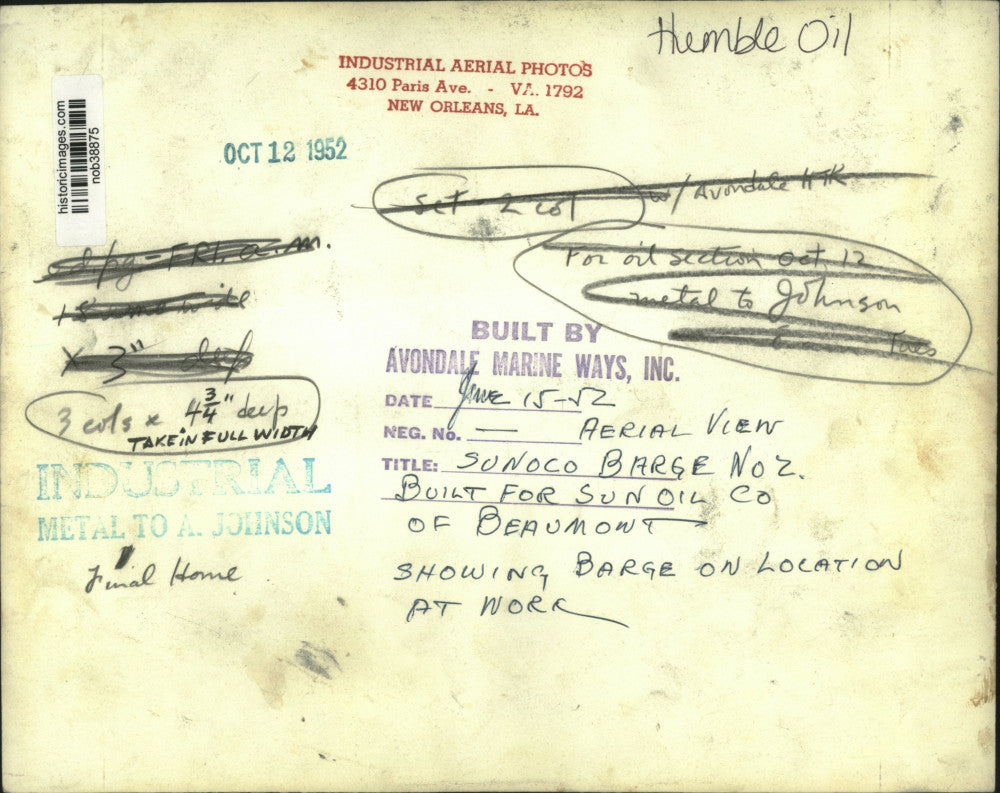 Humble Oil
INDUSTRIAL AERIAL PHOTOS
4310 Paris Ave. - VA. 1792
NEW ORLEANS, LA.
historicimages.com
nob38875
OCT 12 1952
Set 2 col w/ Avondale HTK
For oil section Oct. 12
metal to Johnson
Tues
FRI. a.m.
wide
x 3" deep
3 cols x 4 3/4" deep
TAKE IN FULL WIDTH
INDUSTRIAL
METAL TO A. JOHNSON
Final Home
BUILT BY
AVONDALE MARINE WAYS, INC.
DATE June 15-52
NEG. No. — AERIAL VIEW
TITLE: SUNOCO BARGE NO 2.
BUILT FOR SUN OIL CO
OF BEAUMONT
SHOWING BARGE ON LOCATION
AT WORK